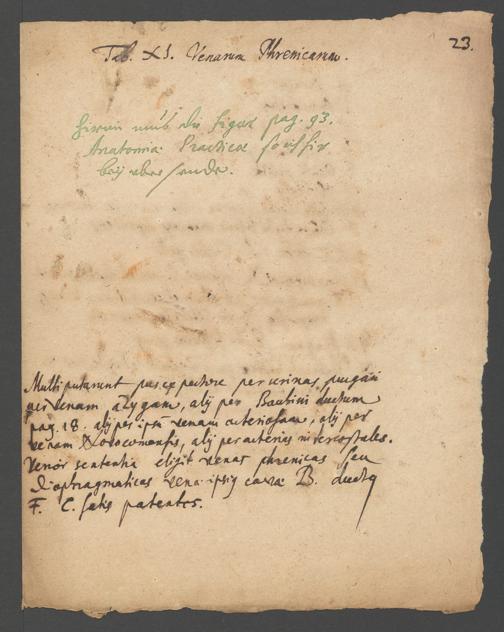 23.
Tab. XI. Venarum Phrenicarum.
hierin muß die Figur pag. 93.
Anatomia Practica so ich hir
beÿ übersende.
Multi putarunt pus ex pectore per urinas purgari
per venam azygam, alij per Bautini ductum
pag. 18. alij per ipsi venam arteriosam, alij per
venam, alij per arterias intercostales.
Verior sententia eligit venas phrenicas seu
Diaphragmaticas venæ ipsiq cavæ B. ductq
F. C. satis patentes.